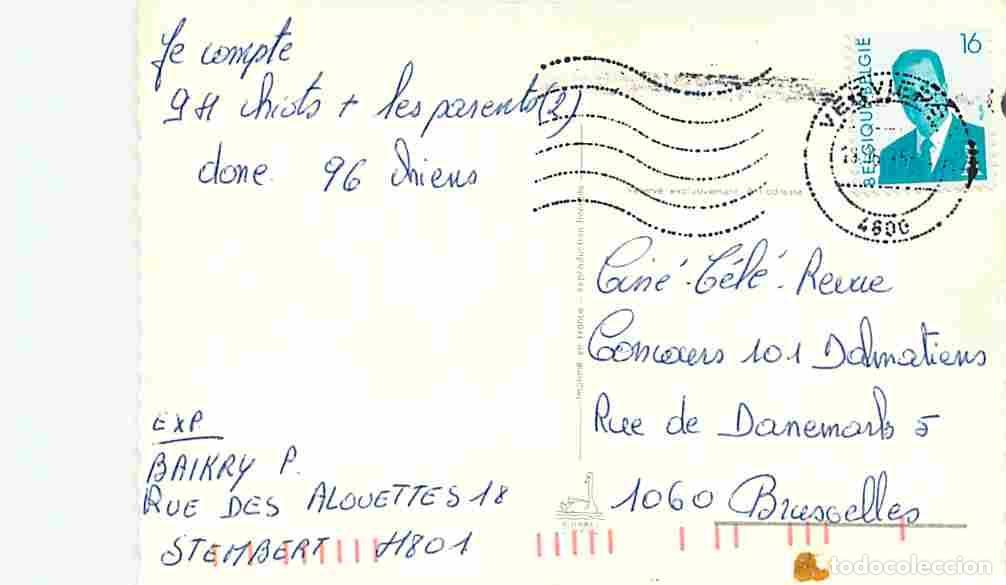 Je compte
94 chiots + les parents (2)
donc 96 chiens
BELGIQUE BELGIE
16
VERVIERS
4800
Imprimé en France - reproduction interdite
Ciné-Télé-Revue
Concours 101 Dalmatiens
Rue de Danemark 5
1060 Bruxelles
EXP
BAIKRY P.
RUE DES ALOUETTES 18
STEMBERT 4801
todocoleccion